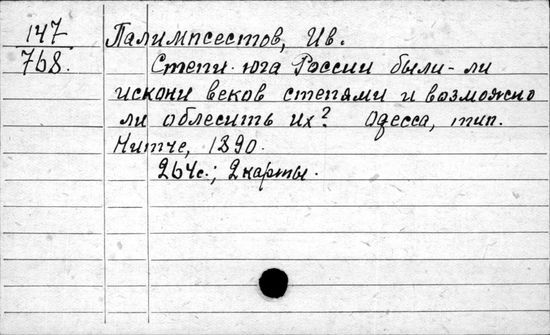 147 Палимпсестов, Ив.
768. Степи юга России были-ли
искони веков степями и возможно
ли облесить их? Одесса, тип.
Нитче, 1890.
264с.; 2карты.